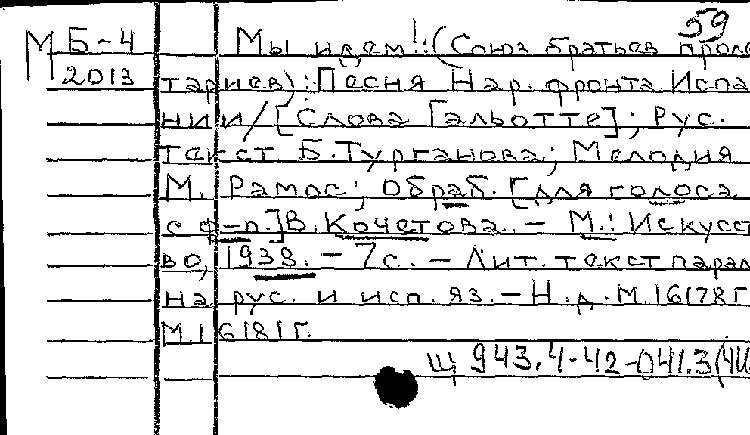 59
М Б-4
2013
Мы идем!: (Союз братьев проле
тариев): Песня Нар. фронта Испа
нии / [Слова Гальотте]; Рус.
текст Б. Турганова; Мелодия
М. Рамос; Обраб. [для голоса
с ф-п.] В. Кочетова. - М.: Искусст
во, 1938. - 7 с. - Лит. текст парал
на рус. и исп. яз. - Н.д. М.16178Г
М.16181Г.
Щ 943.4-42-041.3(4И